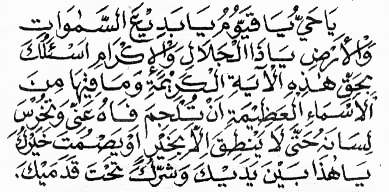 يَا حَيُّ يَا قَيُّومُ يَا بَدِيْعَ السَّمٰوَاتِ
وَالْأَرْضِ يَا ذَا الْجَلَالِ وَالْإِكْرَامِ اَسْئَلُكَ
بِحَقِّ هٰذِهِ الْاٰيَةِ الْكَرِيْمَةِ وَمَا فِيْهَا مِنَ
الْاَسْمَاءِ الْعَظِيْمَةِ اَنْ تُلْجِمَ فَاهُ عَنِّيْ وَتُخْرِسَ
لِسَانَهُ حَتّٰى لَا يَنْطِقَ اِلَّا بِخَيْرٍ اَوْ يَصْمُتَ خَيْرُكَ
يَا هٰذَا بَيْنَ يَدَيْكَ وَشَرُّكَ تَحْتَ قَدَمَيْكَ.